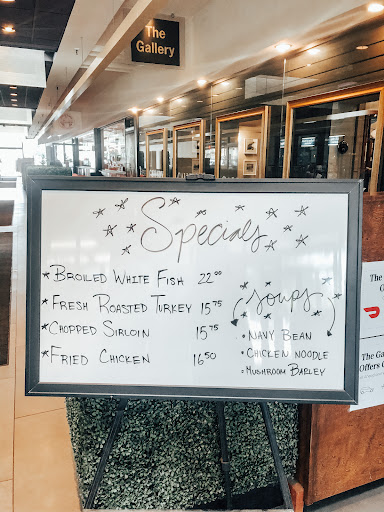 The
Gallery
Specials
* BROILED WHITE FISH 22.00
* FRESH ROASTED TURKEY 15.75
* CHOPPED SIRLOIN 15.75
* FRIED CHICKEN 16.50
Soups
• NAVY BEAN
• CHICKEN NOODLE
• MUSHROOM BARLEY
The
G
The Ga
Offers C